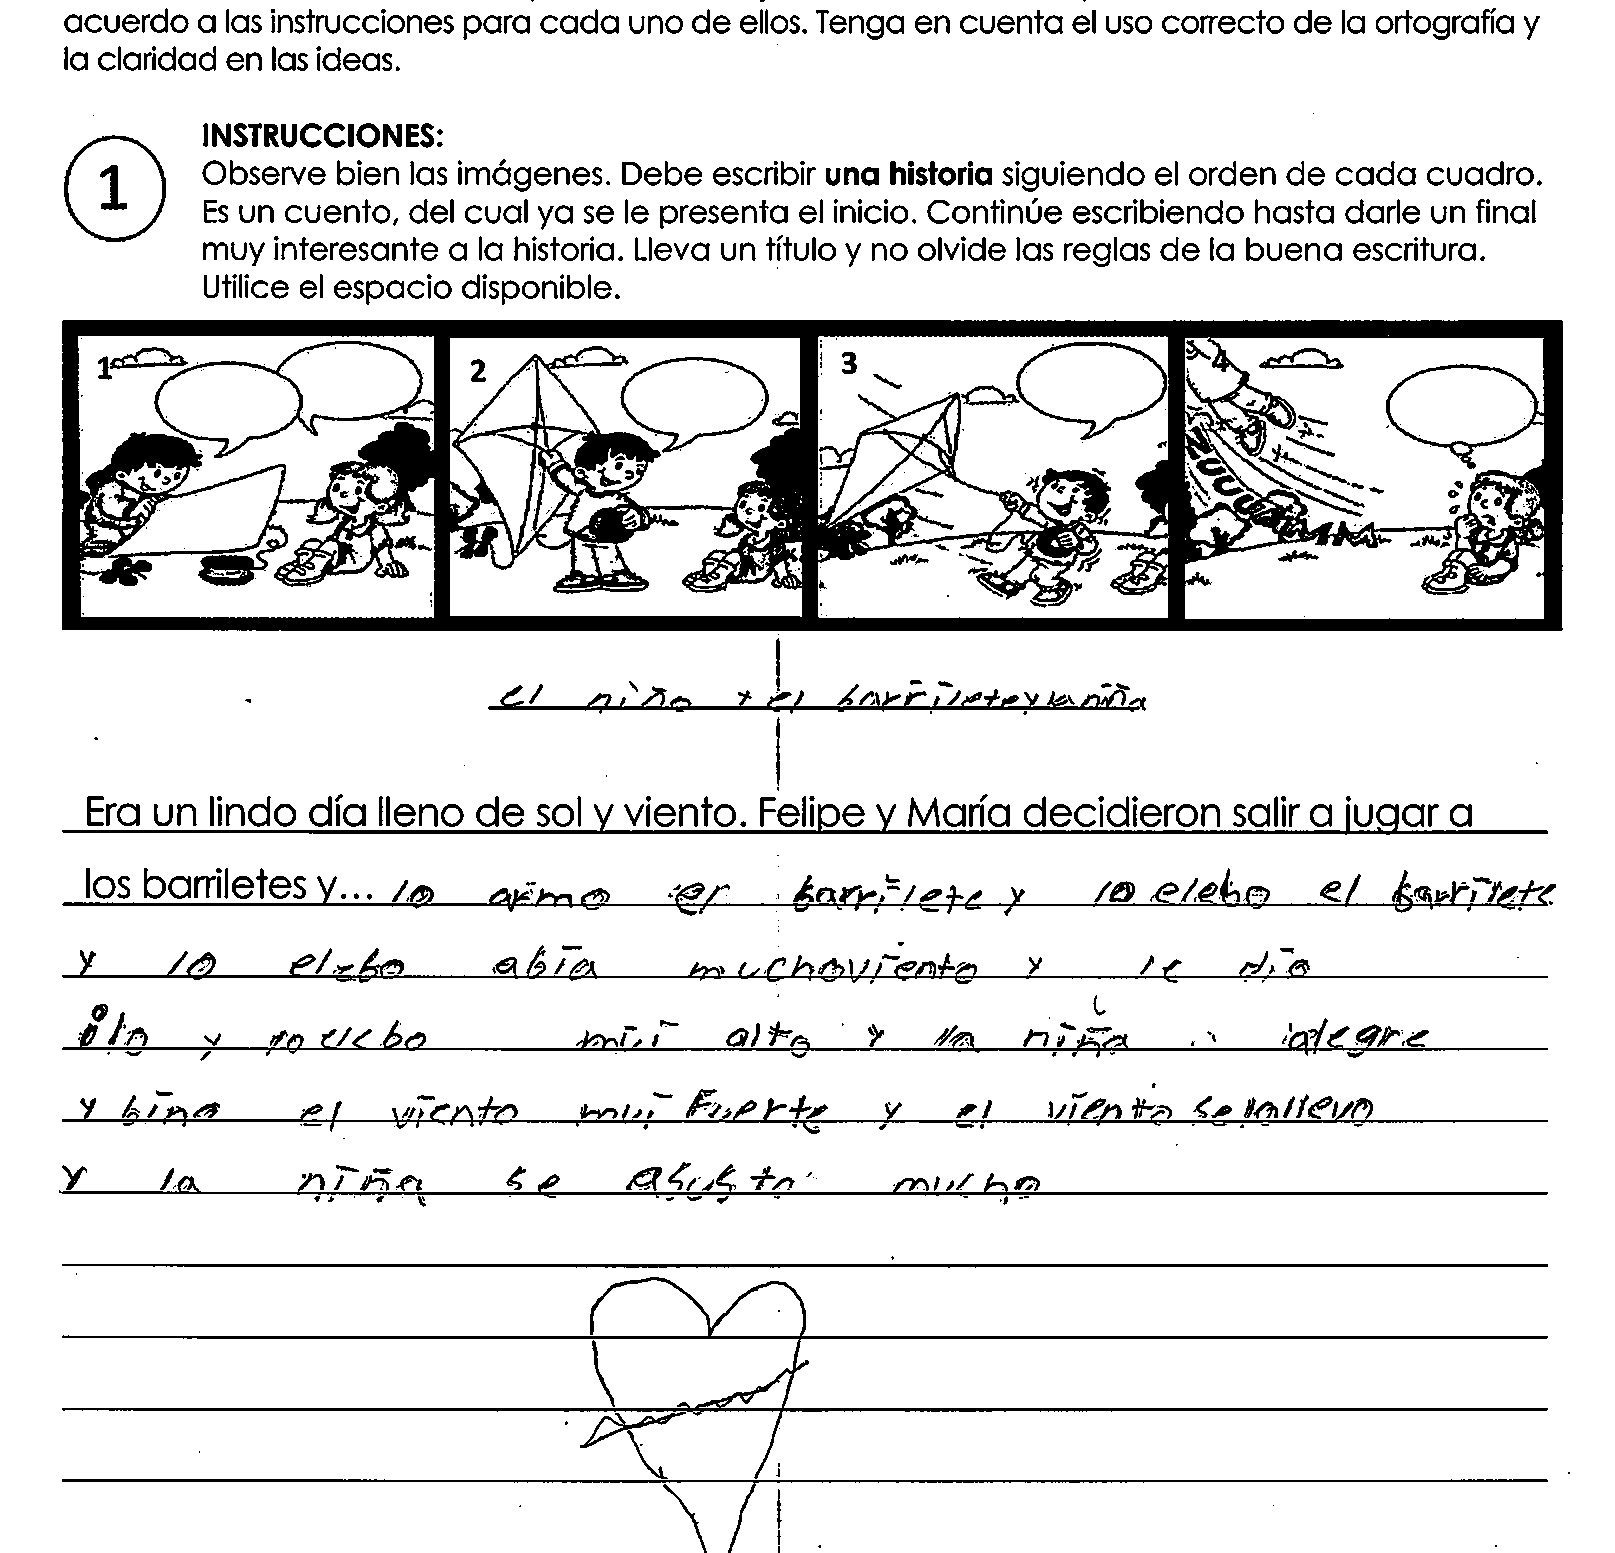 acuerdo a las instrucciones para cada uno de ellos. Tenga en cuenta el uso correcto de la ortografía y
la claridad en las ideas.
INSTRUCCIONES:
1
Observe bien las imágenes. Debe escribir una historia siguiendo el orden de cada cuadro.
Es un cuento, del cual ya se le presenta el inicio. Continúe escribiendo hasta darle un final
muy interesante a la historia. Lleva un título y no olvide las reglas de la buena escritura.
Utilice el espacio disponible.
1 2 3 4
ZUUUUMMM
el niño y el barrilete y la niña
Era un lindo día lleno de sol y viento. Felipe y María decidieron salir a jugar a
los barriletes y... lo armo el barrilete y lo elebo el barrilete
y lo elebo abia mucho viento y le dio
ilo y lo elebo mui alto y la niña alegre
y bino el viento mui fuerte y el viento se lo llevo
y la niña se asusto mucho